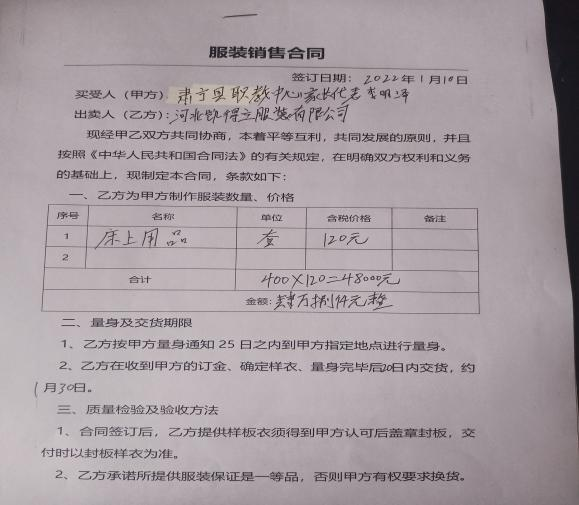 服装销售合同
签订日期：2022年1月10日
买受人（甲方）肃宁县职教中心家长代表李明泽
出卖人（乙方）：河北凯得立服装有限公司
现经甲乙双方共同协商，本着平等互利，共同发展的原则，并且
按照《中华人民共和国合同法》的有关规定，在明确双方权利和义务
的基础上，现制定本合同，条款如下：
一、乙方为甲方制作服装数量、价格
序号 名称 单位 含税价格 备注
1 床上用品 套 120元
2
合计 400×120=48000元
金额：肆万捌仟元整
二、量身及交货期限
1、乙方按甲方量身通知25日之内到甲方指定地点进行量身。
2、乙方在收到甲方的订金、确定样衣、量身完毕后20日内交货，约
1月30日。
三、质量检验及验收方法
1、合同签订后，乙方提供样板衣须得到甲方认可后盖章封板，交
付时以封板样衣为准。
2、乙方承诺所提供服装保证是一等品，否则甲方有权要求换货。